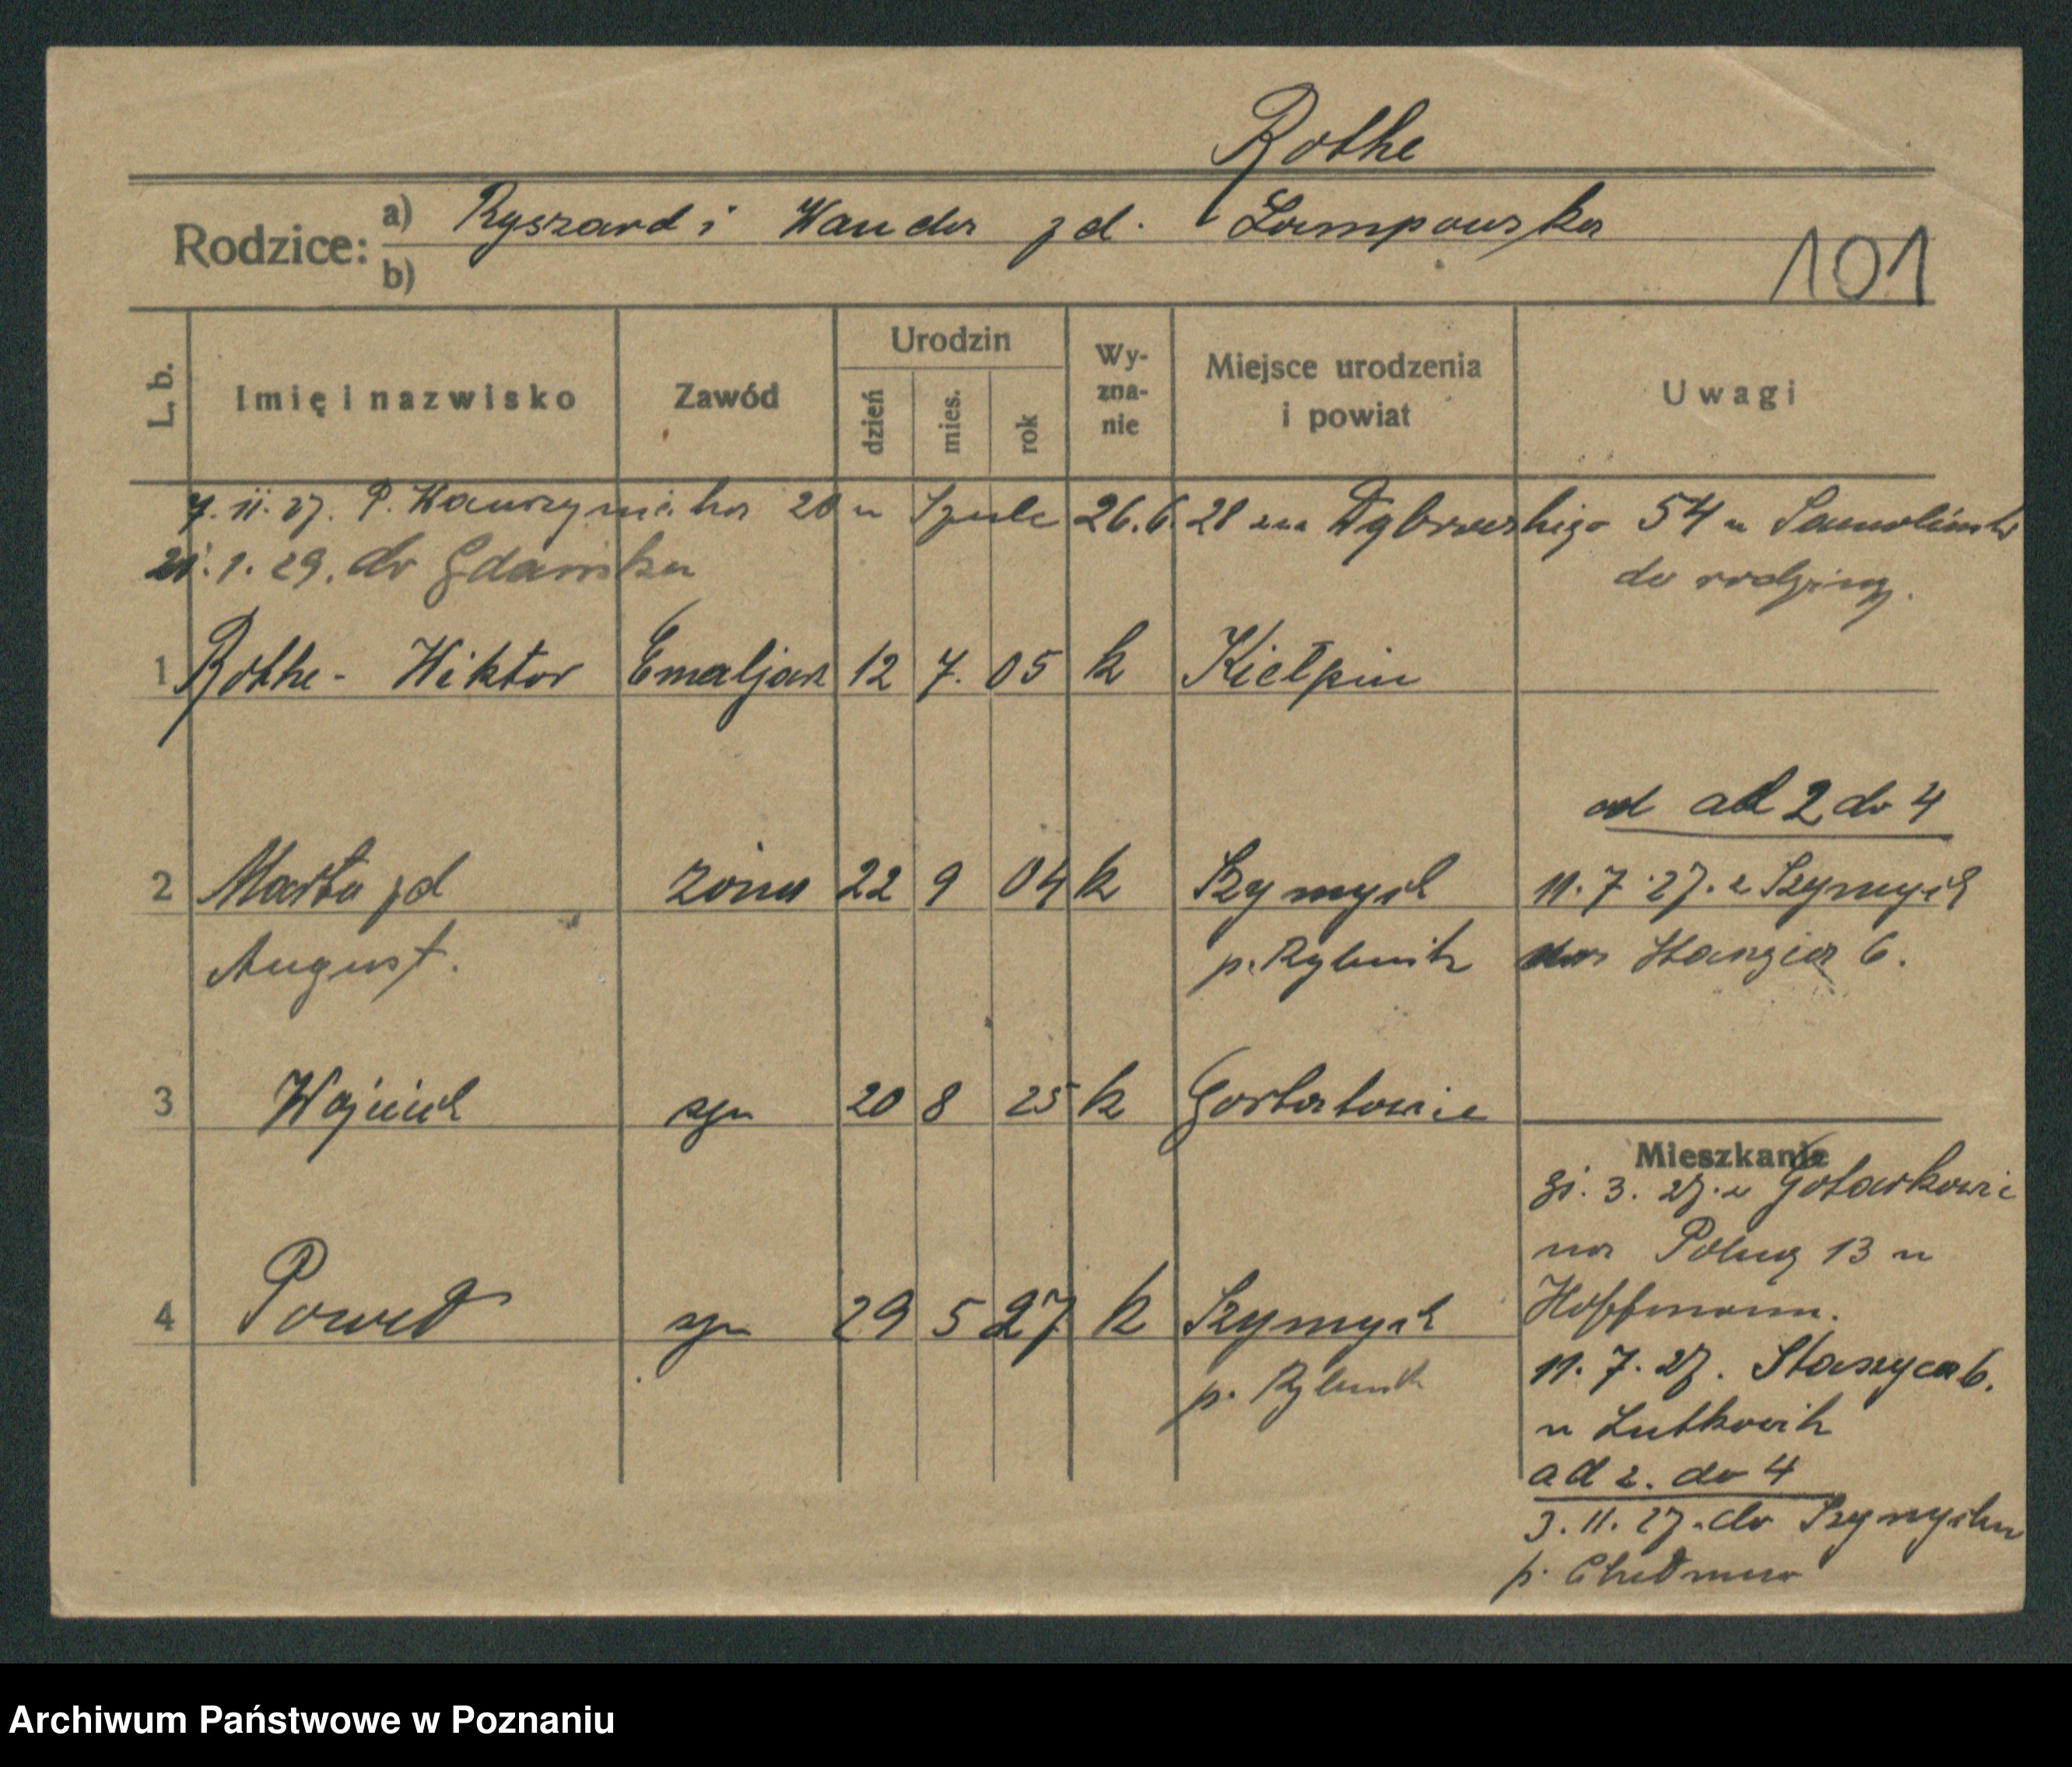 Rothe
Rodzice: a) Ryszard i Wanda zd. Lampowska
b)
101
L. b.
Imię i nazwisko
Zawód
Urodzin
dzień
mies.
rok
Wy-
zna-
nie
Miejsce urodzenia
i powiat
Uwagi
7.11.27. P. Wawrzyniaka 20 u Szulc 26.6.28 na Dąbrowskiego 54 u
21.1.29. do Gdańska
do rodziny.
1 Rothe - Wiktor Emaljarz 12 7. 05 k Kiełpin
od ad 2 do 4
2 Marta zd żona 22 9 04 k 11.7.27. z
August. p. Rybnik 6.
3 Wojciech syn 20 8 25 k
Mieszkanie
31. 3. 27. z
4 Paweł syn 29 5 27 k
na Polną 13 u
Hoffmann.
p. Rybnik
11. 7. 27. Staszyca 6.
u
ad 2. do 4
3. 11. 27. do
p.
Archiwum Państwowe w Poznaniu